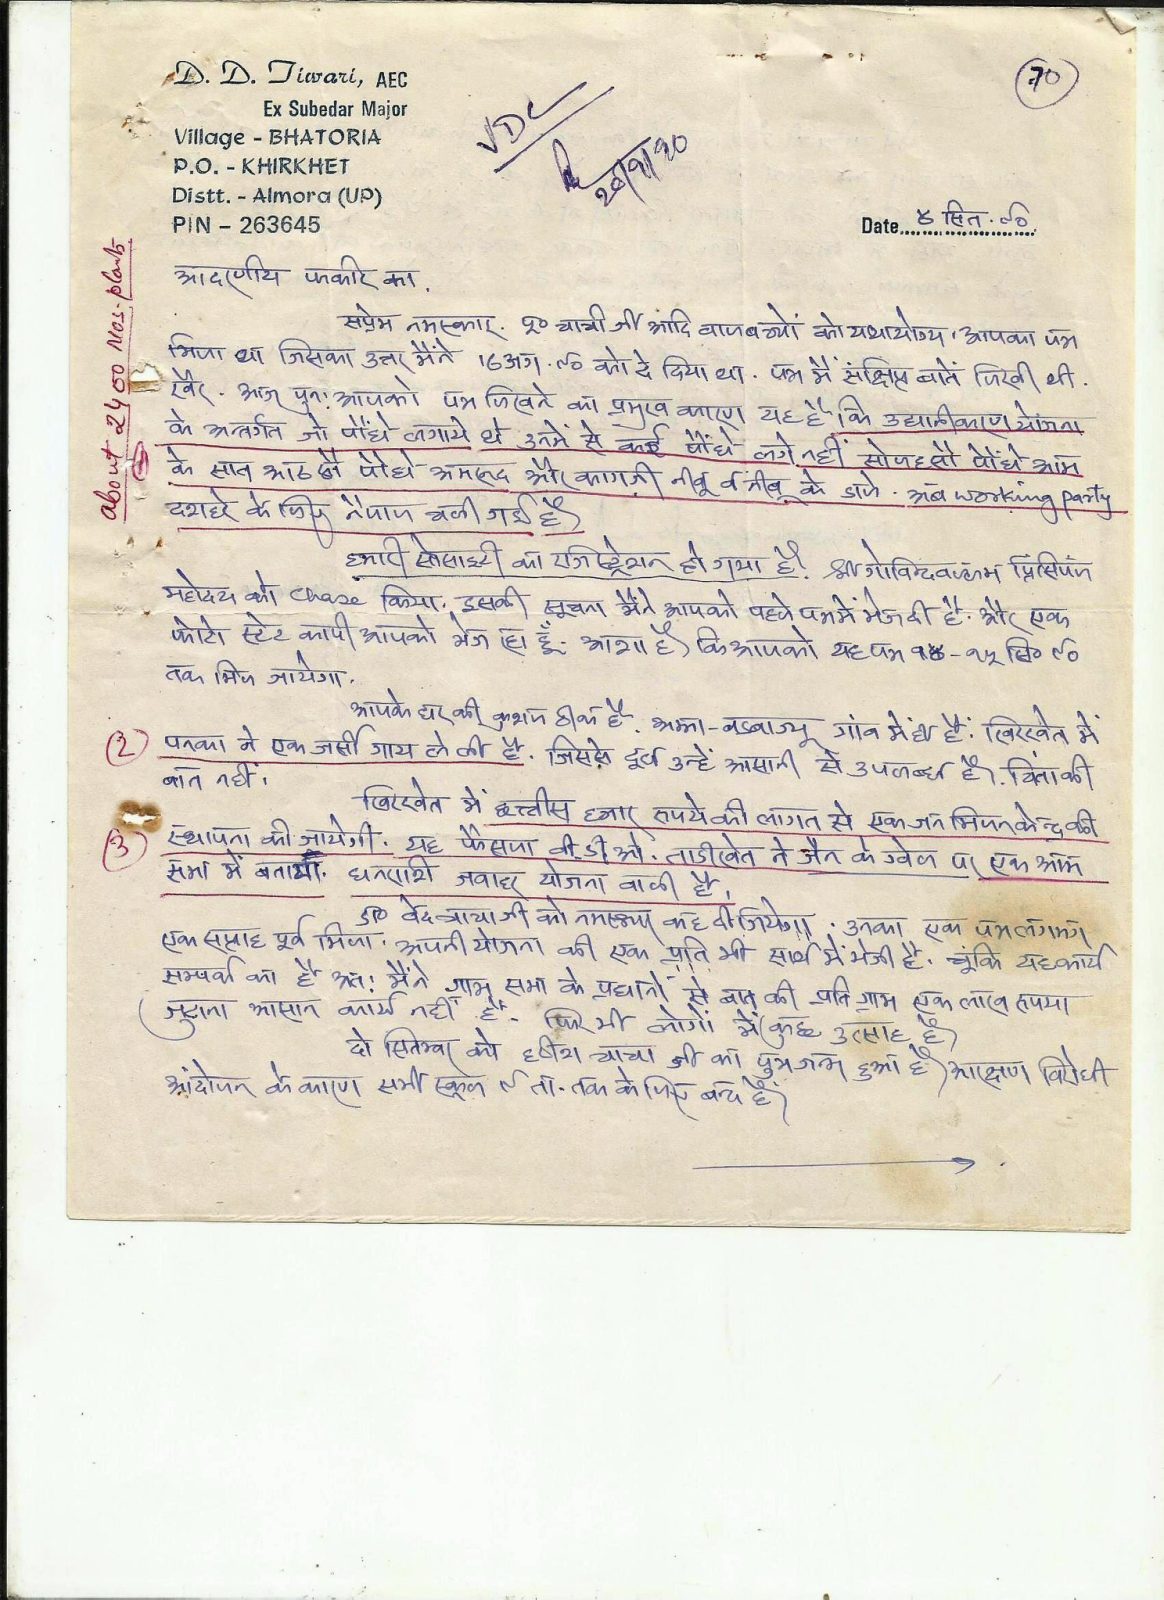 D. D. Tiwari, AEC
Ex Subedar Major
Village - BHATORIA
P.O. - KHIRKHET
Distt. - Almora (UP)
PIN - 263645
VDC
२०/९/९०
70
Date ४ सित. ९०
About 2400 Nos. plants
आदरणीय फकीर का,
सप्रेम नमस्कार. पू० चाची जी आदि बालबच्चों को यथायोग्य. आपका पत्र
मिला था जिसका उत्तर मैंने 16 अग. ९० को दे दिया था. पत्र में संक्षिप्त बातें लिखी थी.
खैर. आज पुनः आपको पत्र लिखने का प्रमुख कारण यह है कि उद्यानीकरण योजना
के अन्तर्गत जो पौधे लगाये थे उनमें से कई पौधे लगे नहीं सोलहसौ पौधे आम
के सात आठ सौ पौधे अमरूद और कागजी नीबू व नीबू के डाले. अब working party
दशहरे के लिए नैपाल चली गई है
हमारी सोसाइटी का रजिस्ट्रेशन हो गया है. श्री गोविन्दवल्लभ प्रिंसिपल
महोदय को chase किया. इसकी सूचना मैंने आपको पहले पत्र में भेज दी है. और एक
फोटो स्टेट कापी आपको भेज रहा हूँ. आशा है कि आपको यह पत्र १४-१५ सि० ९०
तक मिल जायेगा.
आपके घर की कुशल ठीक है. अम्मा-बड़बाज्यू गांव में ही हैं. खिरखेत में
(2) पनका ने एक जर्सी गाय ले ली है. जिससे दूध उन्हें आसानी से उपलब्ध है. चिंता की
बात नहीं.
खिरखेत में छत्तीस हजार रुपये की लागत से एक जन मिलन केन्द्र की
(3) स्थापना की जायेगी. यह फैसला बी.डी.ओ. ताड़ीखेत ने जैन के ग्वेल पर एक आम
सभा में बताया. धनराशि जवाहर योजना वाली है.
डा० वेद चाचा जी को नमस्कार कह दीजियेगा. उनका एक पत्र लगभग
एक सप्ताह पूर्व मिला. अपनी योजना की एक प्रति भी साथ में भेजी है. चूंकि यह कार्य
सम्पर्क का है अतः मैंने ग्राम सभा के प्रधानों से बात की प्रति ग्राम एक लाख रुपया
जुटाना आसान कार्य नहीं है. फिर भी लोगों में कुछ उत्साह है
दो सितम्बर को हरीश चाचा जी का पुत्र जन्म हुआ है आरक्षण विरोधी
आंदोलन के कारण सभी स्कूल ९ ता. तक के लिए बन्द हैं